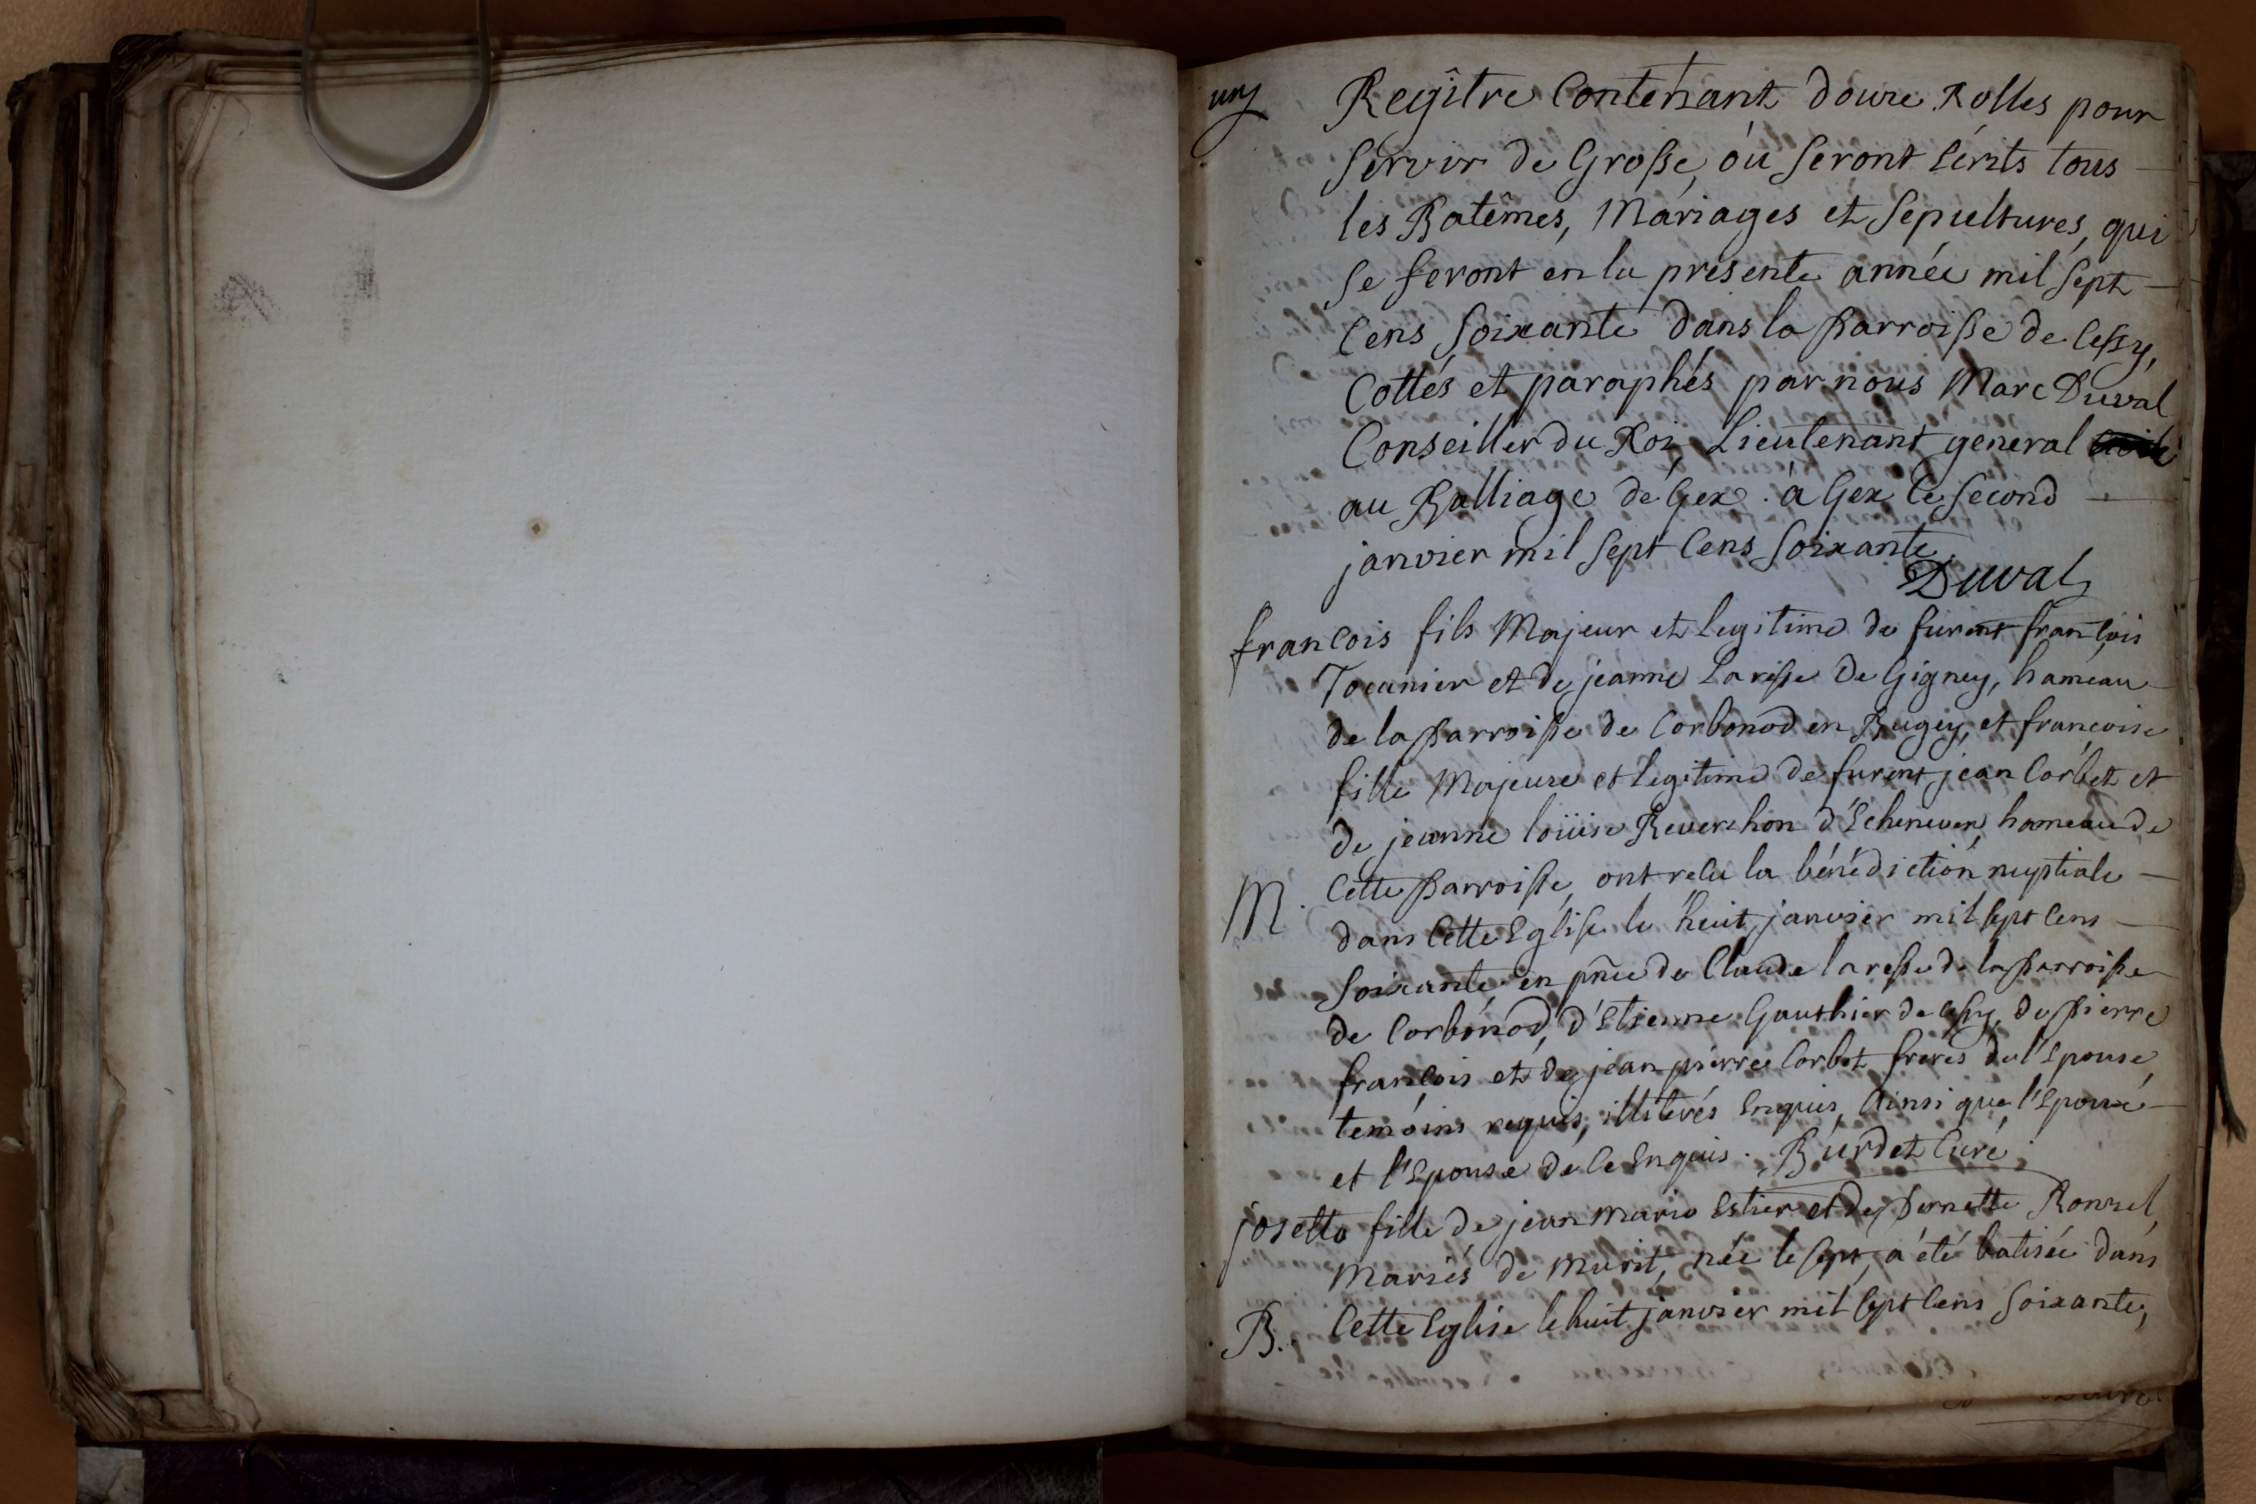 un
Regître Contenant douze Rolles pour
servir de Grosse, où seront Ecrits tous
les Batêmes, Mariages et Sepultures, qui
se feront en la présente année mil sept
Cens soixante dans la parroisse de Cessy,
Cottés et paraphés par nous Marc Duval
Conseiller du Roi, Lieutenant general
au Balliage de Gex. à Gex le second
janvier mil sept Cens soixante.
Duval
francois fils Majeur et legitime de furent françois
Tocanier et de jeanne Laresse de Gigney, hameau
de la parroisse de Corbonod en Bugey, et francoise
fille Majeure et legitime de furent jean Corbet et
de jeanne loüise Reverchon d'Echenevex hameau de
M. Cette parroisse, ont recu la bénédiction nuptiale
dans Cette Eglise le huit janvier mil sept Cens
soixante en pñce de Claude laresse de la parroisse
de Corbonod, d'Etienne Gauthier de Cessy, de pierre
francois et de jean pierre Corbet freres de l'Epouse,
temoins requis, illiterés Enquis, Ainsi que l'Epoux
et l'Epouse de Ce Enquis. Burdet Curé
josette fille de jean marie Estier et de pernette Ronzel,
Mariés de Murit, née le sept, a été batisée dans
B. Cette Eglise le huit janvier mil sept Cens soixante,